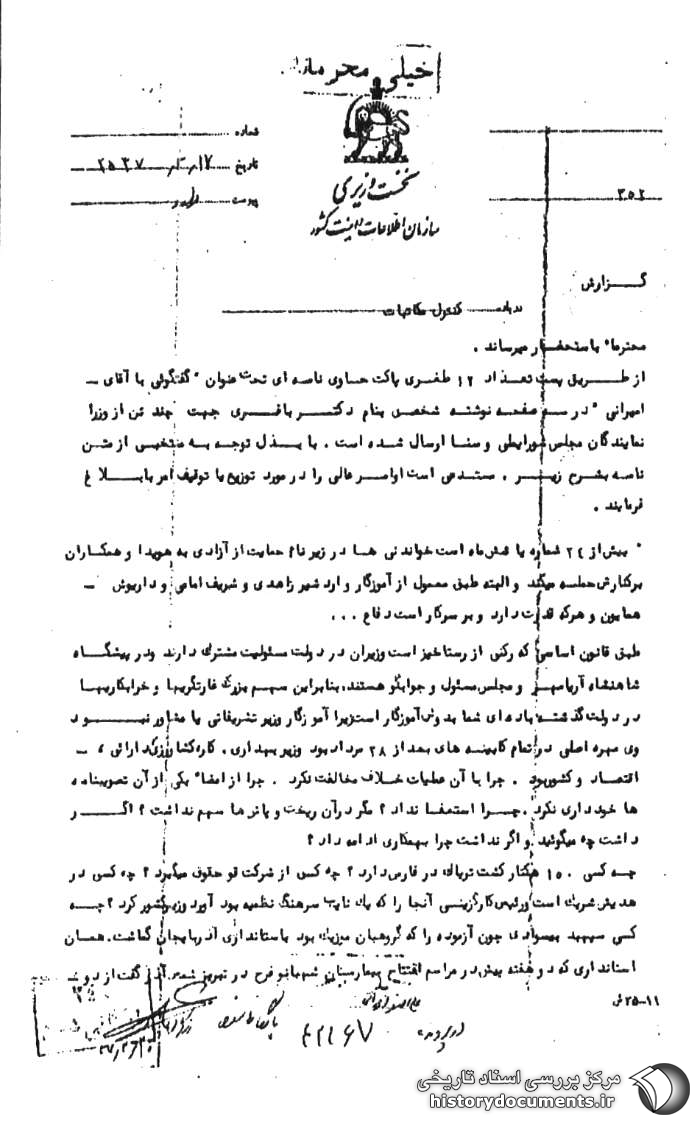 خیلی محرمانه
شماره
تاریخ ۲۵۳۷
پیوست
نخست وزیری
سازمان اطلاعات و امنیت کشور
۳۵۲
گزارش
درباره کنترل مکاتبات
محترما" باستحضار میرساند .
از طریق پست تعداد ۱۲ طغری پاکت حاوی نامه ای تحت عنوان " گفتگوئی با آقای –
امیرانی " در سه صفحه نوشته شخصی بنام دکتر باقری جهت چند تن از وزرا
نمایندگان مجلس شورایملی و سنا ارسال شده است . با بذل توجه به منتخبی از متن
نامه بشرح زیر ، مستدعی است اوامر عالی را در مورد توزیع یا توقیف امر بابلاغ
فرمایند .
" بیش از ۲۴ شماره یا شش ماه است خواندنی ها در زیر نام حمایت از آزادی به هویدا و همکاران
برکنارش حمله میکند و البته طبق معمول از آموزگار و اردشیر زاهدی و شریف امامی و داریوش –
همایون و هرکه قدرت دارد و بر سرکار است دفاع ...
طبق قانون اساسی که رکنی از رستاخیز است وزیران در دولت مسئولیت مشترک دارند و در پیشگاه
شاهنشاه آریامهر و مجلس مسئول و جوابگو هستند، بنابراین سهم بزرگ غارتگریها و خرابکاریها
در دولت گذشته باده ای شما بدوش آموزگار است زیرا آموزگار وزیر تشریفاتی یا مشاور نبود
وی مهره اصلی در تمام کابینه های بعد از ۲۸ مرداد بود وزیر بهداری ، کار، کشاورزی، دارائی ، –
اقتصاد و کشور بود . چرا با آن عملیات خلاف مخالفت نکرد . چرا از امضا" یکی از آن تصویبنامه
ها خودداری نکرد . چرا استعفا نداد ؟ مگر در آن ریخت و پاش ها سهم نداشت ؟ اگر
داشت چه میگوئید و اگر نداشت چرا بهمکاری ادامه داد ؟
چه کسی ۱۵۰ هکتار کشت تریاک در فارس دارد ؟ چه کس از شرکت قو حقوق میگیرد ؟ چه کسی در
هدیش شریک است و رئیس کارگزینی آنجا را که یک نایب سرهنگ نظمیه بود آورد وزیر کشور کرد ؟ چه
کسی سپهبد بیسوادی چون آزموده را که گروهبان موزیک بود باستانداری آذربایجان گماشت. همان
استانداری که دو هفته پیش در مراسم افتتاح بیمارستان شهبانو فرح در تبریز گفت از دو
۱۱–۳۵ ش
در پرونده
مرکز بررسی اسناد تاریخی
historydocuments.ir